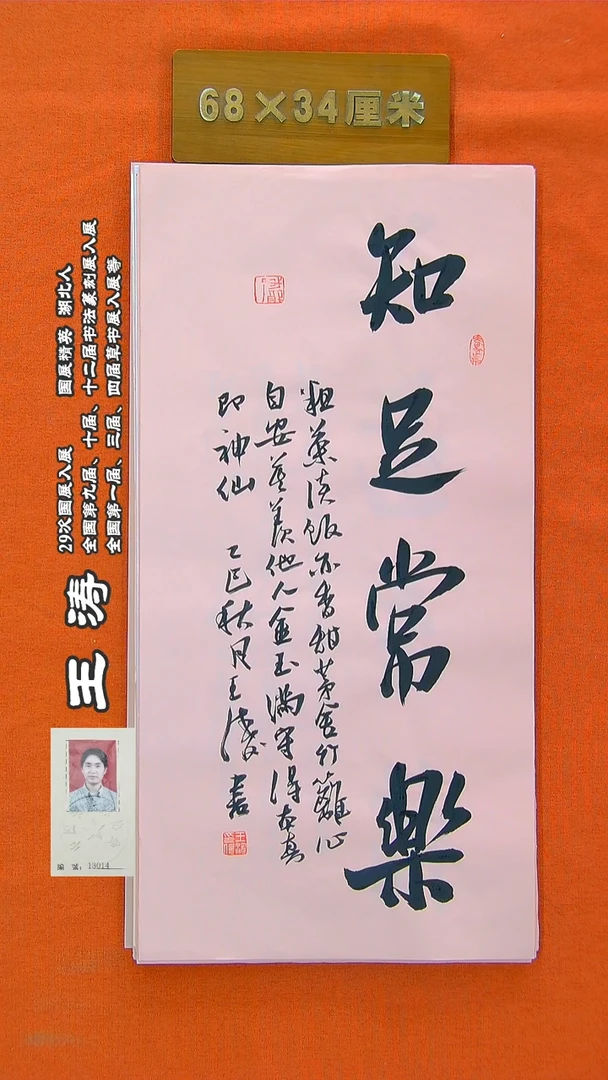 68×34厘米
知足常樂
粗茶淡飯亦香甜茅舍竹籬心
自安莫羨他人金玉滿守得本真
即神仙 乙巳秋月王濤書
王涛
29次国展入展 国展精英 湖北人
全国第九届、十届、十二届书法篆刻展入展
全国第一届、三届、四届草书展入展等
編號：13014